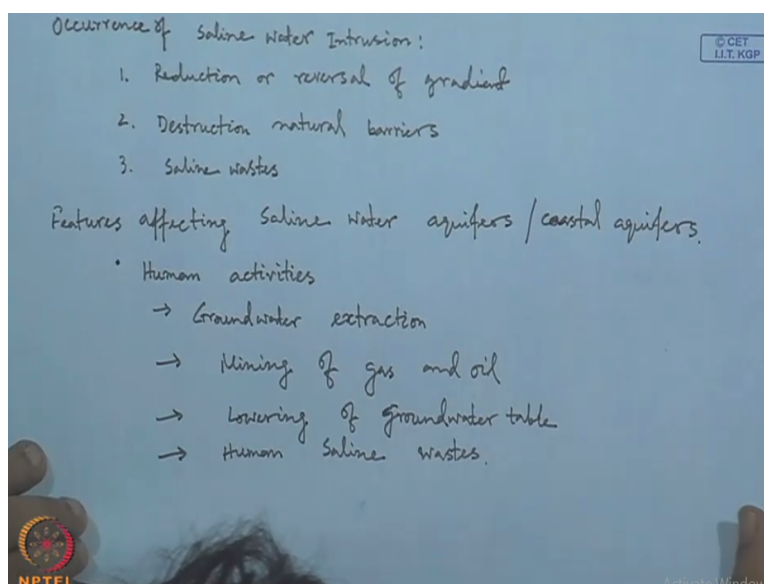 Occurrence of Saline Water Intrusion:
© CET
I.I.T. KGP
1. Reduction or reversal of gradient
2. Destruction natural barriers
3. Saline wastes
Features affecting Saline Water aquifers / coastal aquifers.
• Human activities
→ Groundwater extraction
→ Mining of gas and oil
→ Lowering of groundwater table
→ Human Saline wastes.
NPTEL
Activate Window